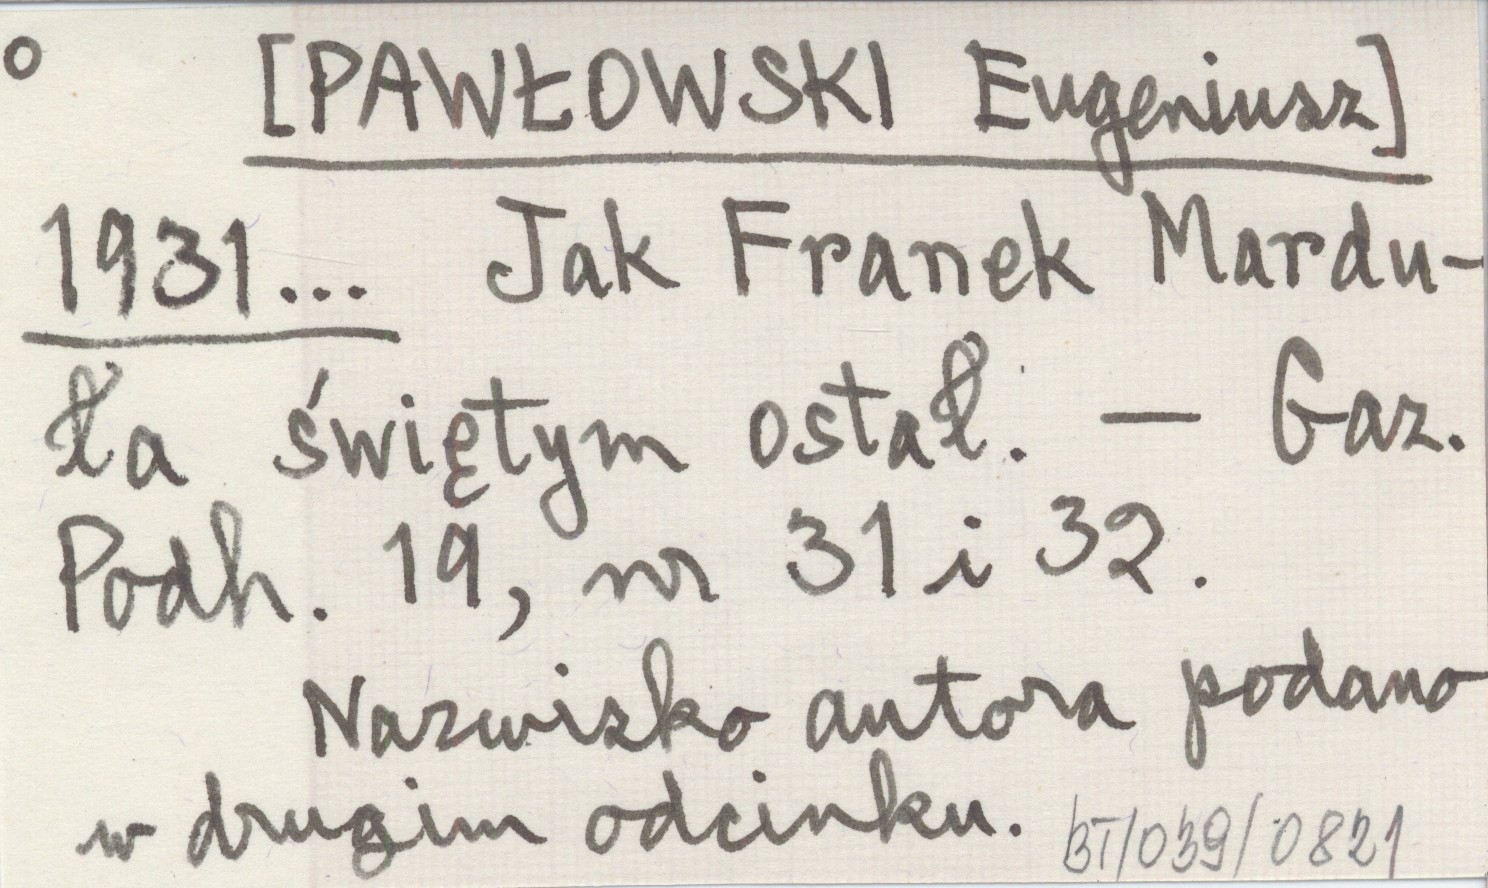 o [PAWŁOWSKI Eugeniusz]
1931... Jak Franek Mardu-
ła świętym ostał. — Gaz.
Podh. 19, nr 31 i 32.
Nazwisko autora podano
w drugim odcinku. BT/039/0821